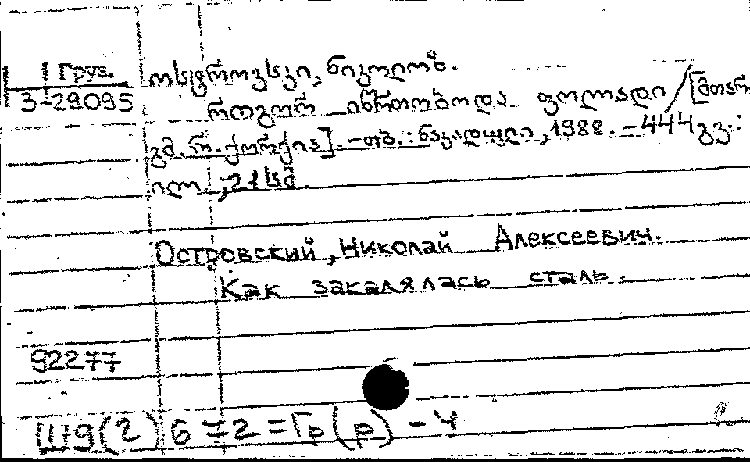 Груз.
3-29095
ოსტროვსკი, ნიკოლოზ.
როგორ იწრთობოდა ფოლადი / [მთარ
გმ. რ. ქორქია]. – თბ. : ნაკადული, 1988. – 444 გვ. :
ილ. ; 21 სმ.
Островский, Николай Алексеевич.
Как закалялась сталь.
92277
Ш9(2) 6 = 2 = Гр(р) - 4